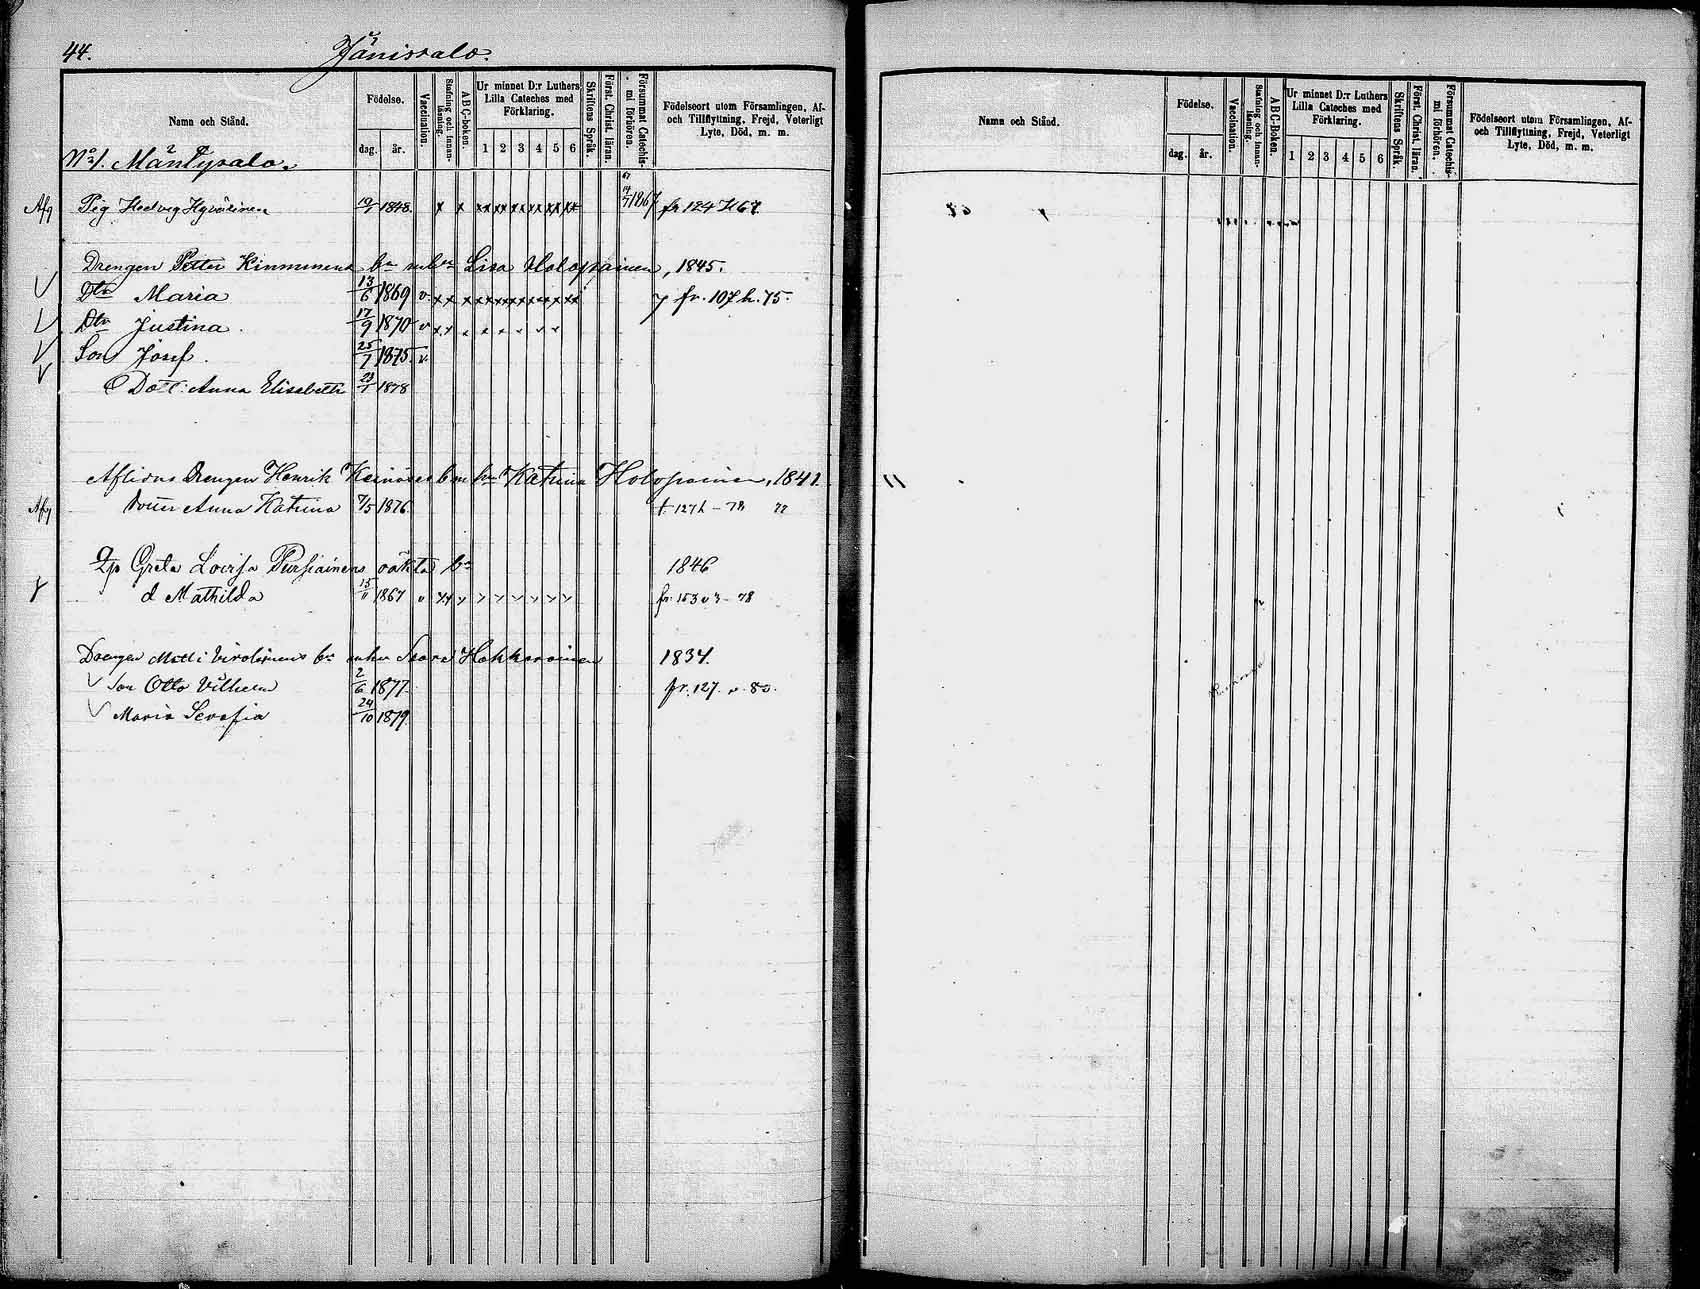 44. Jänissalo.
Namn och Stånd.
Födelse.
dag. år.
Vaccination.
Stafning och innanläsning.
ABC-boken.
Ur minnet D:r Luthers Lilla Cateches med Förklaring.
1 2 3 4 5 6
Skriftens Språk.
Först. Christ. läran.
Försummat Catechismi förhören.
Födelseort utom Församlingen, Af- och Tillflyttning, Frejd, Veterligt Lyte, Död, m. m.
No 1. Mäntysalo.
Afg Pig Hedvig Hyvärinen 1848. x x xx xx xx xx xx xx 1867 fr 124 h 67.
Drengen Petter Kinnunens bn m hu Lisa Holopainen, 1845.
Dtr Maria 13/6 1869 v. x x x xx xx xx xx xx xx fr. 107 h. 75.
Dtr Justina. 17/9 1870 v x x
Son Josef. 25/7 1875. v.
Dott: Anna Elisabeth 23/1 1878
Aflidne Drengen Henrik Keinänens bn m hu Katrina Holopainen, 1841.
Afg Anna Katrina 7/5 1876. 127 h - 78
Greta Lovisa Pursiainens oäkta bn 1846
d Mathilda 15/11 1867 v fr. 153 v 3 - 78
Drengen Matti Virolainens bn m hu Hokkarainen 1834.
Son Otto Vilhelm 2/6 1877. fr. 127. v. 80.
Maria Serafia 24/10 1879.
Namn och Stånd.
Födelse.
dag. år.
Vaccination.
Stafning och innanläsning.
ABC-Boken.
Ur minnet D:r Luthers Lilla Cateches med Förklaring.
1 2 3 4 5 6
Skriftens Språk.
Först. Christ. läran.
Försummat Catechismi förhören.
Födelseort utom Församlingen, Af- och Tillflyttning, Frejd, Veterligt Lyte, Död, m. m.